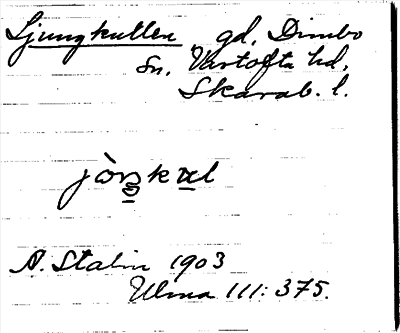 Ljungkullen gd, Dimbo
Sn. Vartofta hd,
Skarab. l.
A. Stalin 1903
Ulma 111:375.